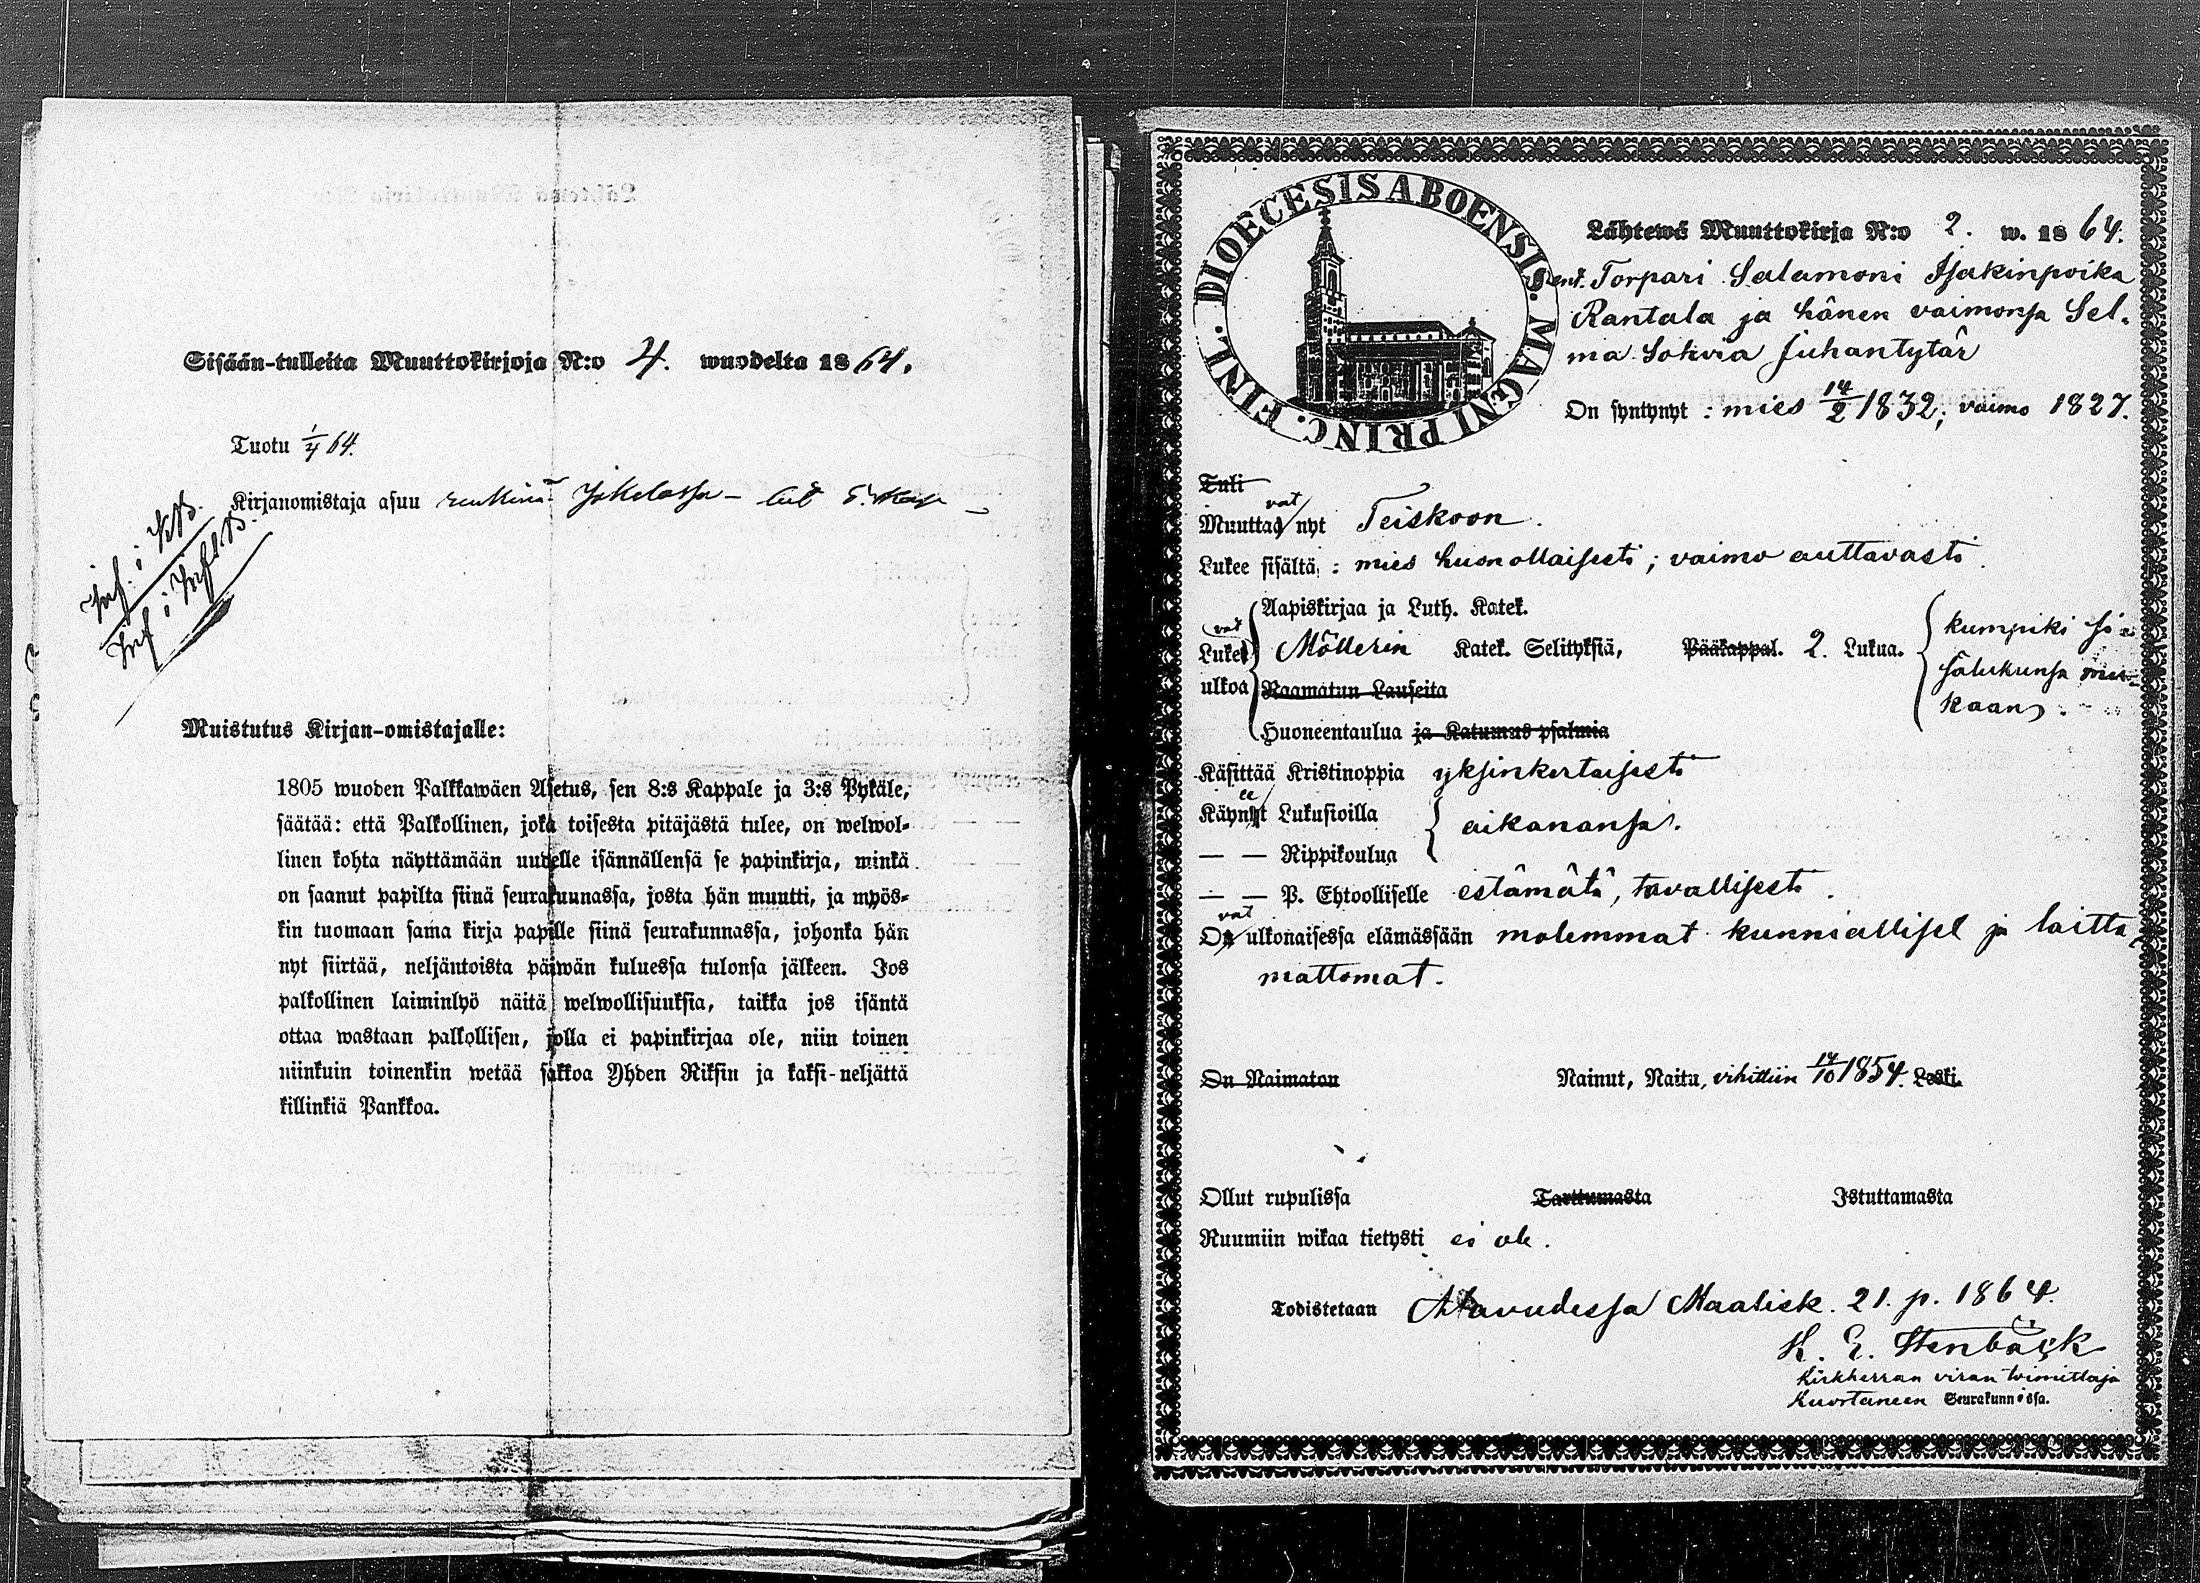 Sisään-tulleita Muuttokirjoja N:o 4. wuodelta 1864.
Tuotu 1/4 64.
Kirjanomistaja asuu renkinä Jokelassa –
Inf. i KB.
Inf i Infl.B.
Muistutus Kirjan-omistajalle:
1805 wuoden Palkkawäen Asetus, sen 8:s Kappale ja 3:s Pykäle,
säätää: että Palkollinen, joka toisesta pitäjästä tulee, on welwol-
linen kohta näyttämään uudelle isännällensä se papinkirja, minkä
on saanut papilta siinä seurakunnassa, josta hän muutti, ja myös-
kin tuomaan sama kirja papille siinä seurakunnassa, johonka hän
nyt siirtää, neljäntoista päiwän kuluessa tulonsa jälkeen. Jos
palkollinen laiminlyö näitä welwollisuuksia, taikka jos isäntä
ottaa wastaan palkollisen, jolla ei papinkirjaa ole, niin toinen
niinkuin toinenkin wetää sakkoa Yhden Riksin ja kaksi-neljättä
killinkiä Pankkoa.
DIOECESIS ABOENSIS. MAGNI PRINC. FINL.
Lähtewä Muuttokirja N:o 2. w. 1864.
ent. Torpari Salamoni Isakinpoika
Rantala ja hänen vaimonsa Sel-
ma Sohvia Juhantytär
On syntynyt : mies 14/2 1832; vaimo 1827.
Tuli
Muuttavat nyt Teiskoon.
Lukee sisältä : mies kunnollaisesti; vaimo auttavasti.
Aapiskirjaa ja Luth. Katek.
Lukevat Möllerin Katek. Selityksiä, Pääkappal. 2. Lukua. kumpiki si-
ulkoa Raamatun Lauseita sälukunsa mu-
kaan.
Huoneentaulua ja Katumus psalmia
Käsittää Kristinoppia yksinkertaisesti
Käyneet Lukusioilla aikanansa.
— — Rippikoulua
— — P. Ehtoolliselle estämätä, tavallisesti.
Ovat ulkonaisessa elämässään molemmat kunnialliset ja laitta-
mattomat.
On Naimaton Nainut, Naitu, vihittiin 14/10 1854. Leski.
Ollut rupulissa Tarttumasta Istuttamasta
Ruumiin wikaa tietysti ei ole.
Todistetaan Alavudessa Maalisk. 21. p. 1864.
K. E. Stenbäck
Kirkherran viran toimittaja
Kuortaneen Seurakunnissa.